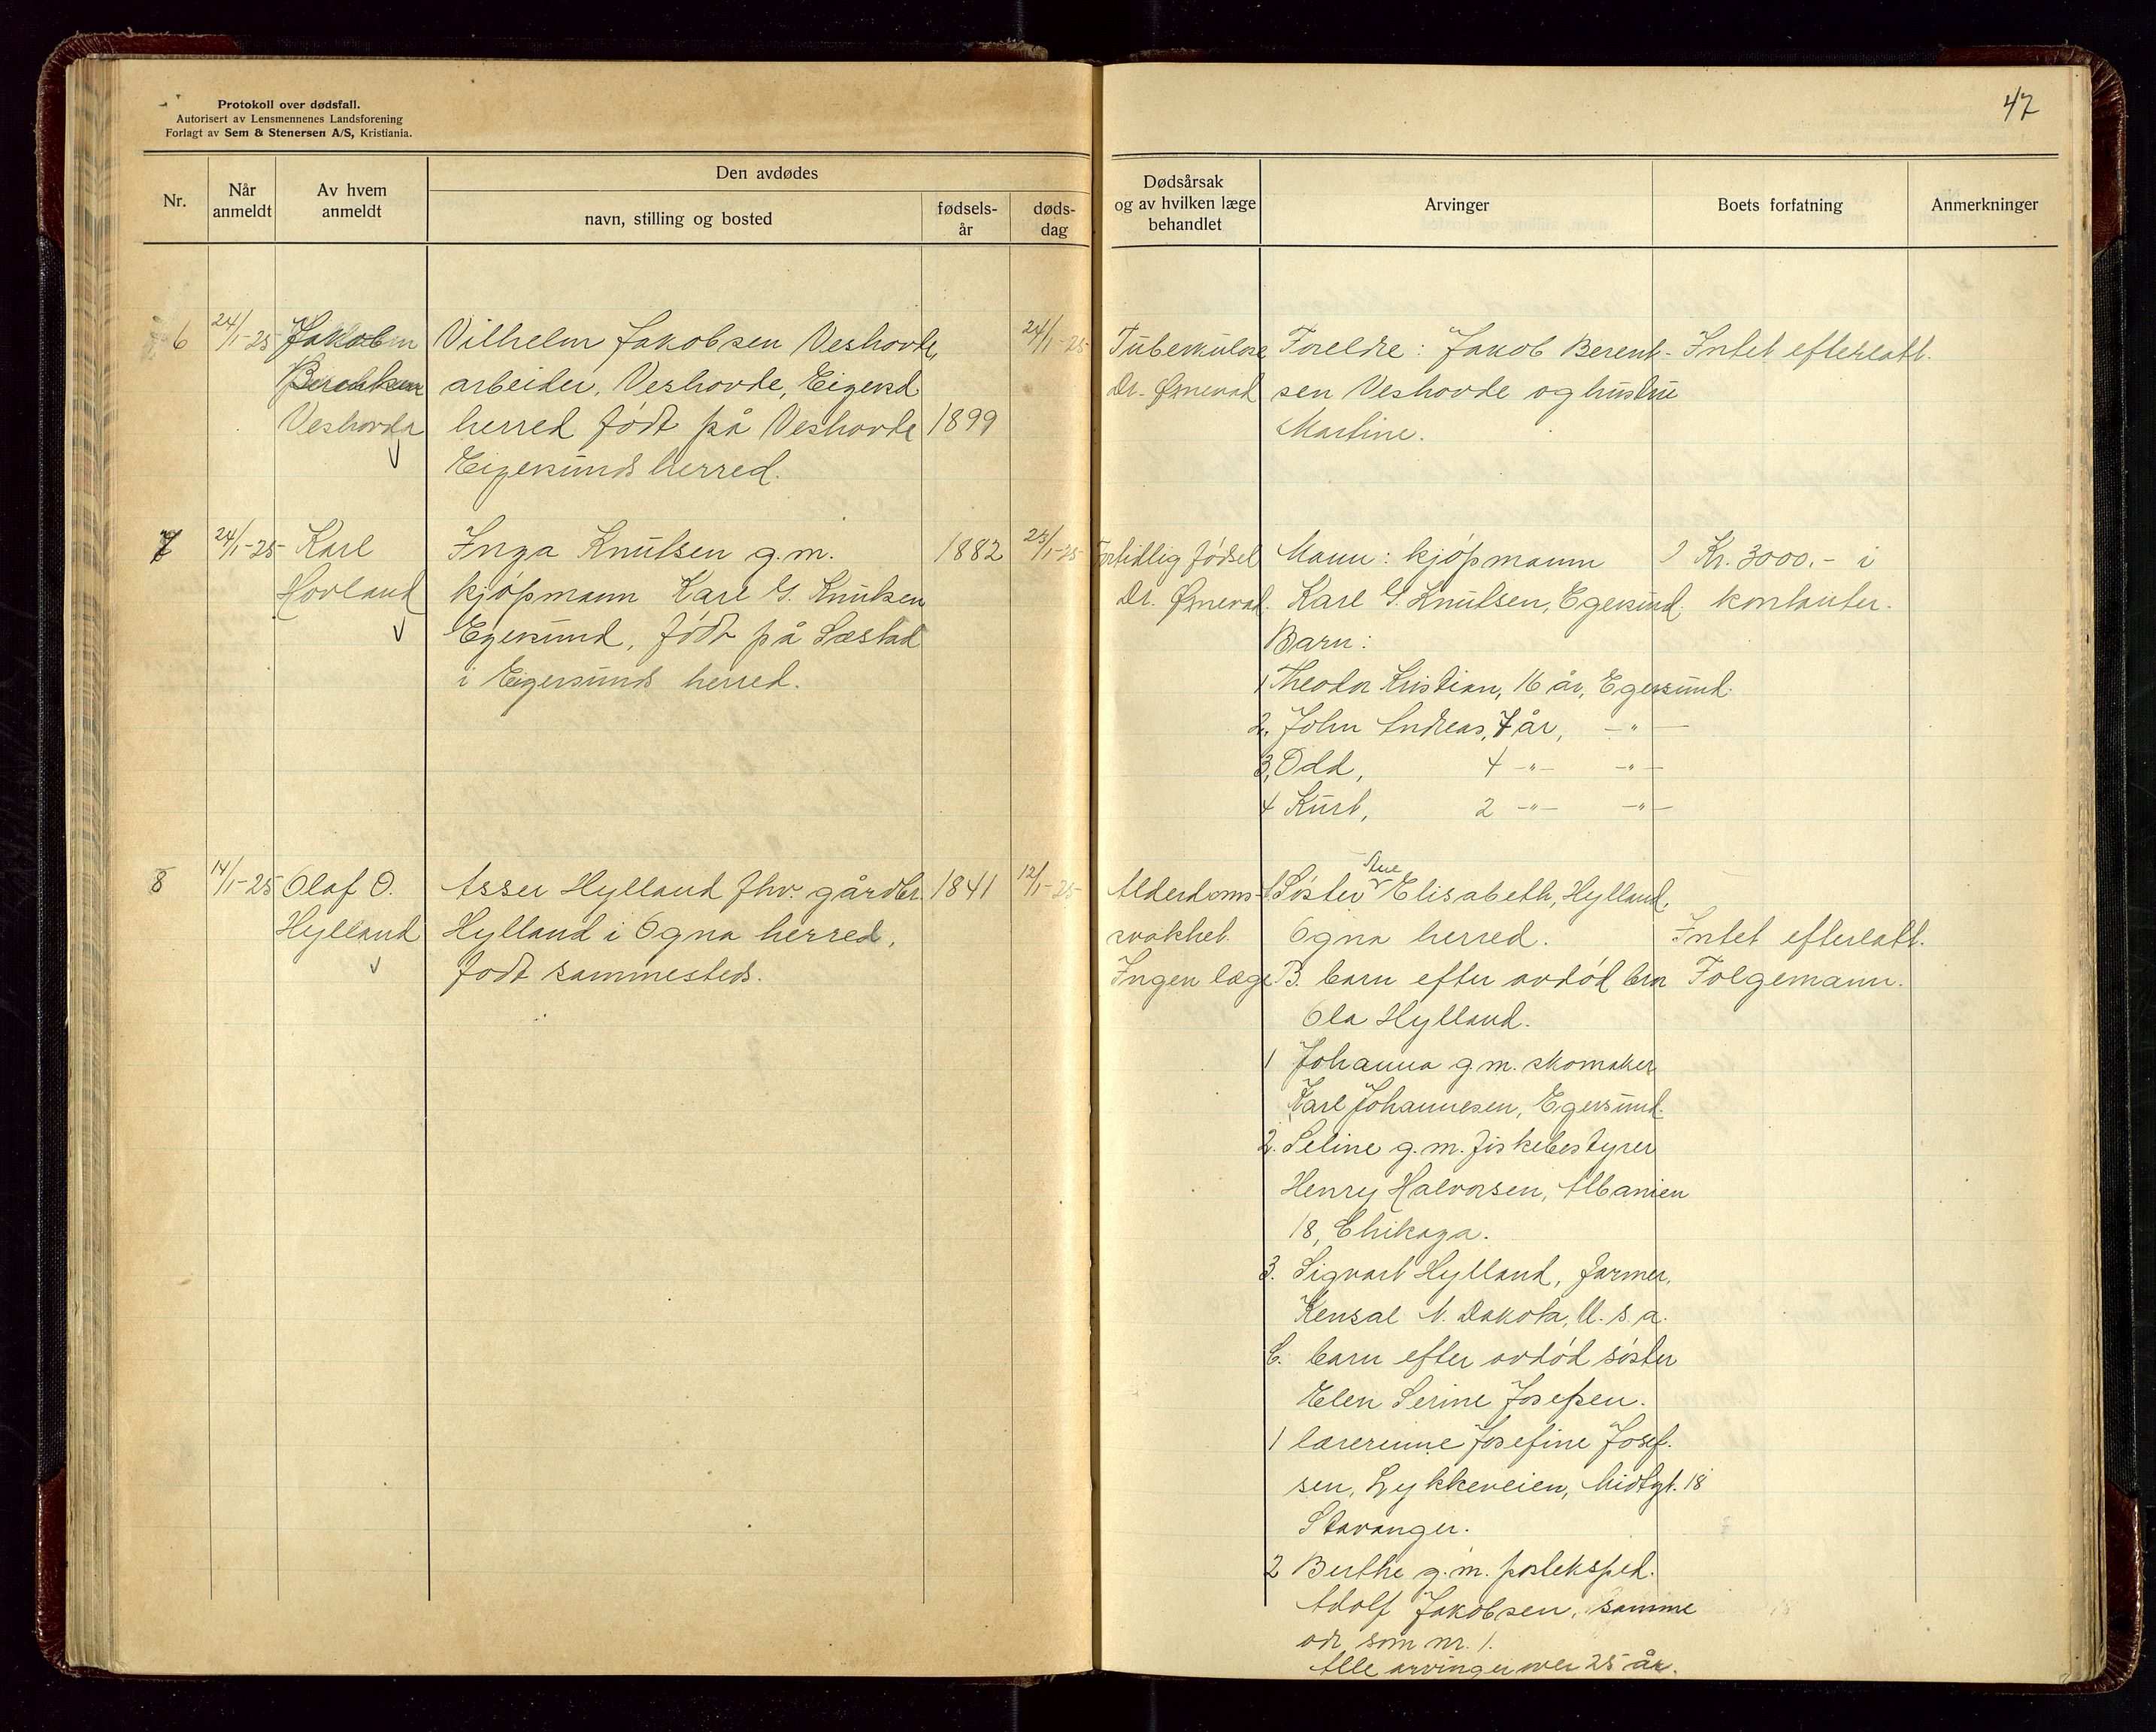 Protokoll over dødsfall.
Autorisert av Lensmennenes Landsforening
Forlagt av Sem & Stenersen A/S, Kristiania.
47
Nr.
Når anmeldt
Av hvem anmeldt
Den avdødes
navn, stilling og bosted
fødsels-år
døds-dag
Dødsårsak og av hvilken læge behandlet
Arvinger
Boets forfatning
Anmerkninger
6
24/1-25
Jakob
Berentsen
Veshovde
Vilhelm Jakobsen Veshovde,
arbeider, Veshovde, Eigersd
herred født på Veshovde
Eigersunds herred.
1899
24/1-25
Tuberkulose
Dr. Ørnevad
Foreldre: Jakob Berent-
sen Veshovde og hustru
Martine.
Intet efterlatt.
7
24/1-25
Karl
Hovland
Inga Knutsen g.m.
kjøpmann Karl G. Knutsen
Egersund, født på Sæstad
i Eigersunds herred.
1882
23/1-25
Fortidlig fødsel
Dr. Ørnevad.
Mann: kjøpmann
Karl G. Knutsen, Egersund.
Barn:
1 Theodor Kristian, 16 år, Egersund.
2. John Andreas, 7 år, -"-
3, Odd, 4 -"- -"-
4 Kurt, 2 -"- -"-
Kr. 3000.- i
kontanter.
8
14/1-25
Olaf O.
Hylland
Asser Hylland fhv. gårdbr.
Hylland i Ogna herred,
født sammesteds.
1841
12/1-25
Alderdoms-
svakhet.
Ingen læge
Søster Elisabeth, Hylland,
Ogna herred.
B. barn efter avdød bror
Ola Hylland.
1 Johanna g.m. skomaker
Karl Johannesen, Egersund.
2. Seline g.m. fiskebestyrer
Henry Halvorsen, Albanien
18, Chikaga.
3. Sigvart Hylland, farmer,
Kensal N. Dakota, U.s.a.
C. barn efter avdød søster
Elen Serine Josefsen.
1 lærerinne Josefine Josef-
sen, Lykkeveien, Midtgt. 18
Stavanger.
2 Berthe g.m. posteksped.
Adolf Jakobsen, samme
adr. som nr. 1.
Alle arvinger over 25 år.
Intet efterlatt.
Folgemann.